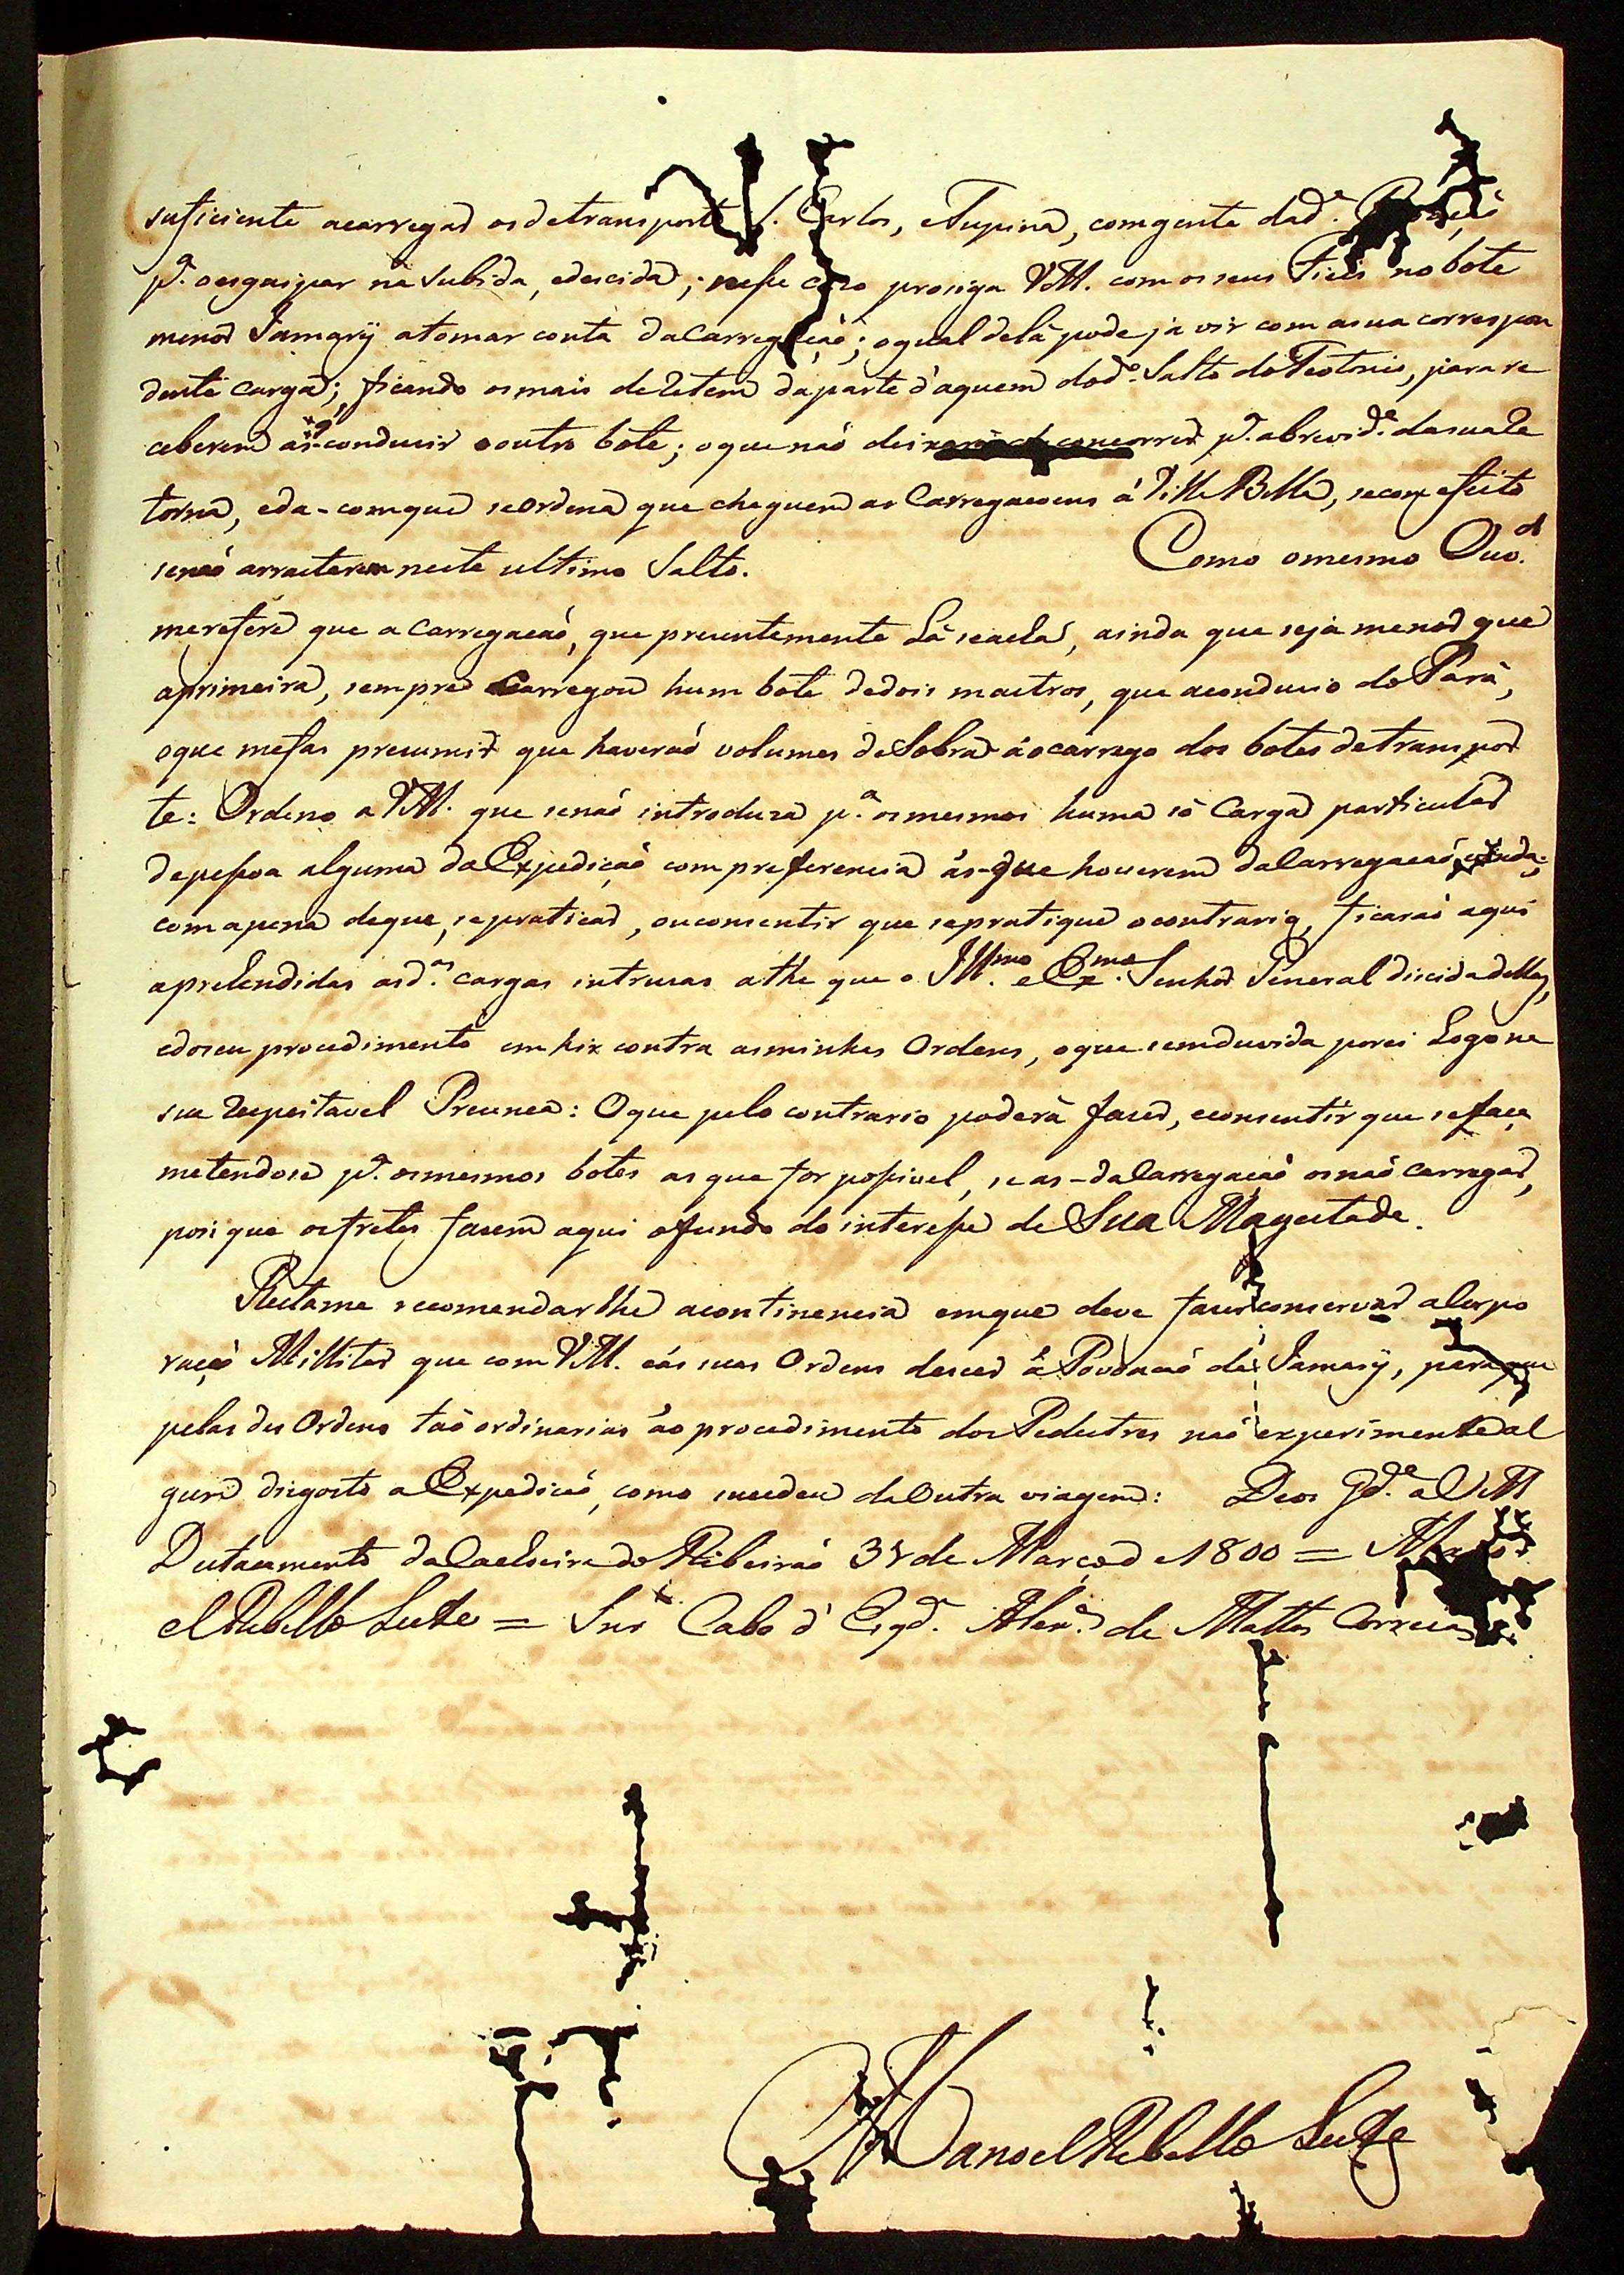 suficiente a carregar os de transporte S. Carlos, e Tupina, com gente da d.ª
p.ª o esquipar na subida, e descida; nesse caso prosiga VM. com os seus Fieis no bote
menor Jamarÿ a tomar conta da Carregação; o qual de lá pode ja vir com a sua correspon
dente carga; ficando os mais de Retem da parte d'aquem do d.º Salto do Teotonio, para re
ceberem as q conducir o outro bote; o que naó deixará de concorrer p.ª a brevid.e da sua Re
torna, e da - com que se ordena que cheguem as Carregacoens á Villa Bella, se com efeito
se naó arrastarem neste ultimo Salto. Como o mesmo
me refere que a Carregacaó, que prezentemente Lá se acha, ainda que seja menor que
a primeira, sempre Carregou hum bote de dois mastros, que a conducio do Pará,
o que me faz prezumir que haveraó volumes de Sobra ao cárrego dos botes de transpor
te: Ordeno a VM. que se naó introduza p.ª os mesmos huma só Carga particular
de pessoa alguma da Expedicaó com preferencia ás - que houverem da Carregacaó
com a pena de que, se praticar, ou consentir que se pratique o contrario, ficaraó aqui
aprehendidas as d.as cargas intruzas athe que o Ill.mo e Ex.mo Senhor General dicida dellas,
e do seu procedimento em hir contra as minhas Ordens, o que sem duvida porei Logo na
sua Respeitavel Prezenca: O que pelo contrario poderá fazer, e consentir que se faca
metendose p.ª os mesmos botes as que for possivel, se as - da Carregacaó os naó carregar,
pois que os fretes fazem aqui o fundo do interesse de Sua Magestade.
Restame recomendarlhe a continencia em que deve fazer conservar a Corpo
racaó Millitar que com VM. e ás suas Ordens descer á Povoacaó de Jamarÿ, para que
pelas des Ordens taó ordinarias áo procedimento dos Pedestres naó experimente al
gum disgosto a Expedicaó, como sucedeu da Outra viagem: Deos G.de a VM
Destacamento da Cachoeira do Ribeiraó 31 de Marco de 1800 =
el Rebello Leite = Snr Cabo d' Esqd.ª Alex.e de Mattos Correia
Manoel Rebello Leite